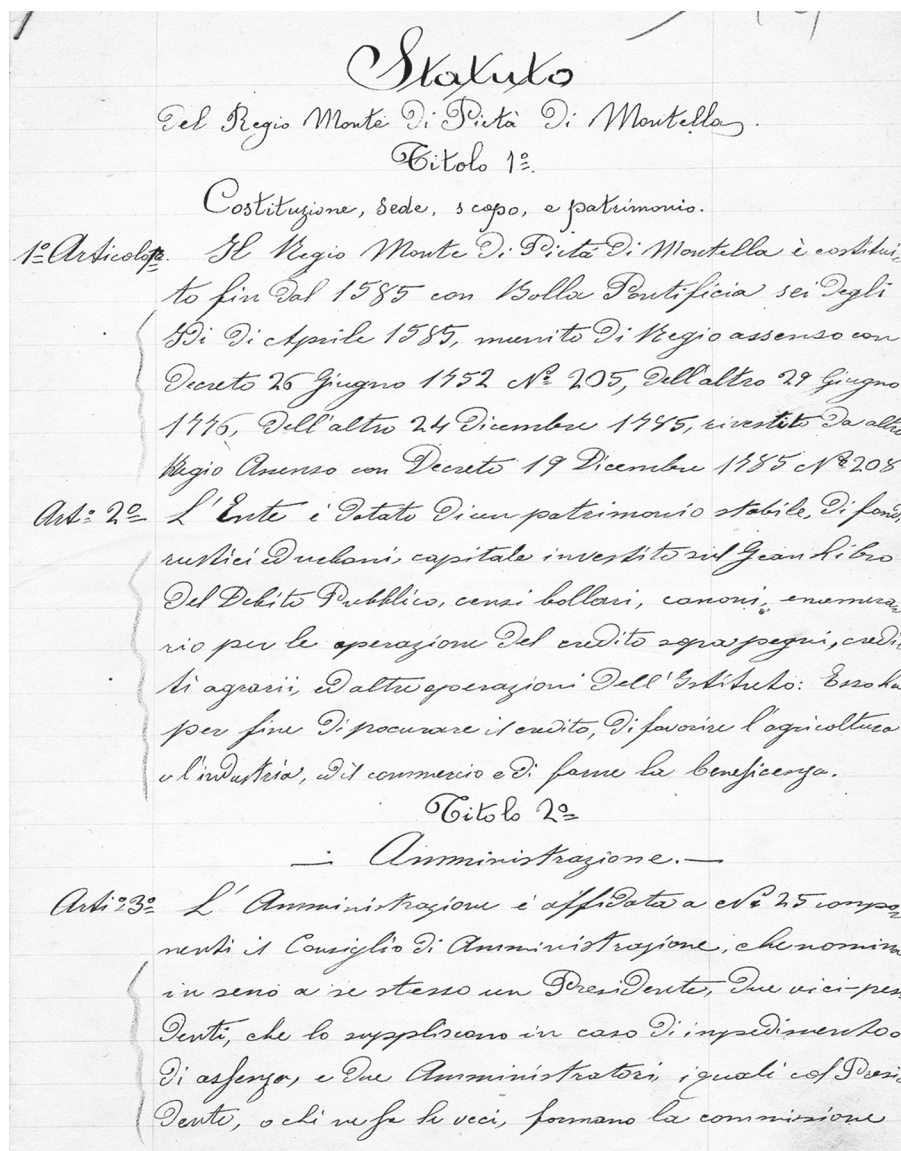 Statuto
del Regio Monte di Pietà di Montella.
Titolo 1º.
Costituzione, sede, scopo, e patrimonio.
1º Articolo Il Regio Monte di Pietà di Montella è costitui-
to fin dal 1585 con Bolla Pontificia sei degli
Idi di Aprile 1585, munito di Regio assenso con
Decreto 26 Giugno 1752 Nº 205, dell'altro 29 Giugno
1776, dell'altro 24 Dicembre 1785, rivestito da altro
Regio Assenso con Decreto 19 Dicembre 1785 Nº 208
Artº 2º L'Ente è dotato di un patrimonio stabile, di fondi
rustici ed urbani, capitale investito sul Gran Libro
del Debito Pubblico, censi bollari, canoni,
rio per le operazione del credito sopra pegni, credi-
ti agrarii, ed altre operazioni dell'Istituto: Esso ha
per fine di procurare il credito, di favorire l'agricoltura
e l'industria, ed il commercio e di farne la beneficenza.
Titolo 2º
— Amministrazione. —
Artiº 3º L'Amministrazione è affidata a Nº 25 compo-
nenti il Consiglio di Amministrazione, che nomina
in seno a se stesso un Presidente, due vici-pres
denti, che lo suppliscono in caso di impedimento o
di assenza, e due Amministratori, i quali col Presi-
dente, o chi ne fa le veci, formano la commissione